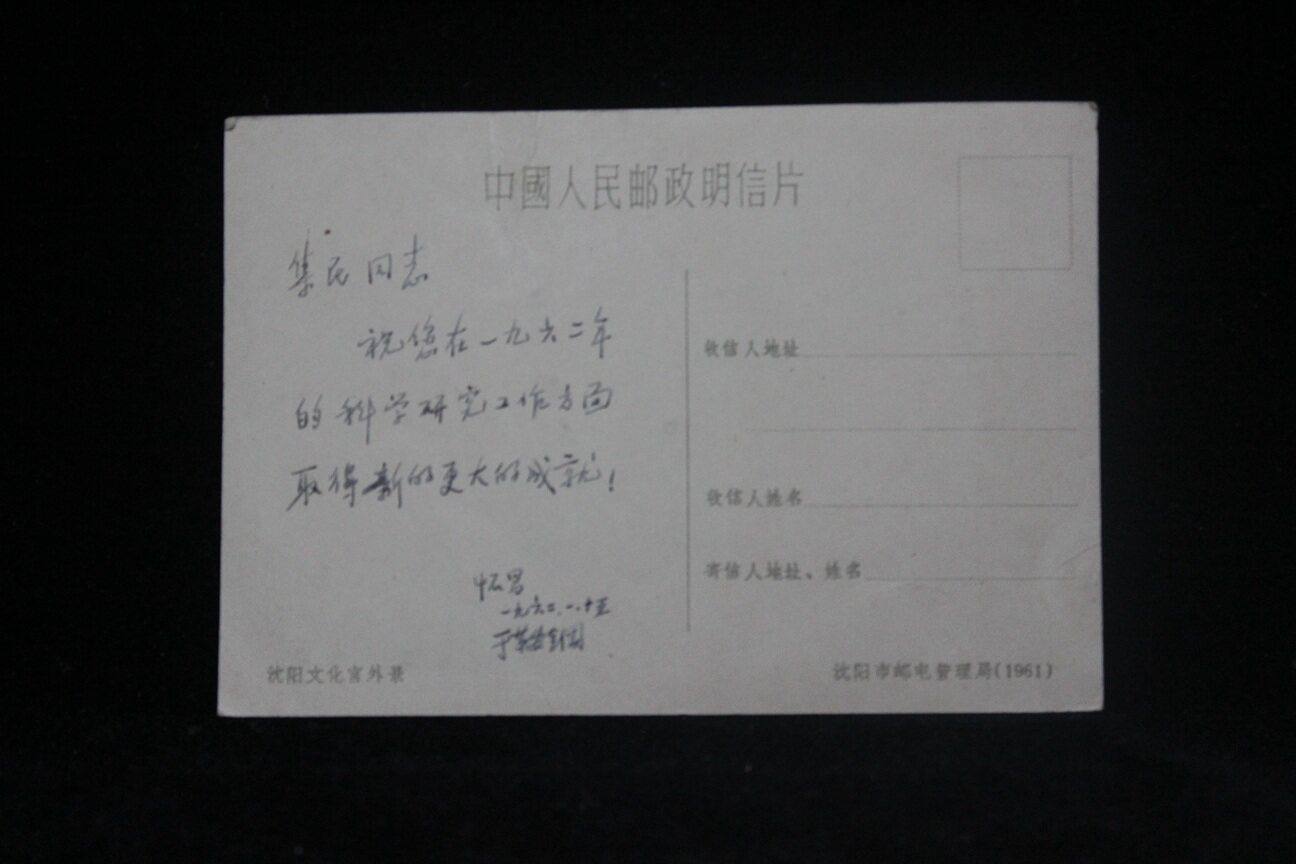 中國人民邮政明信片
集民同志
祝您在一九六二年
的科学研究工作方面
取得新的更大的成就！
怀昌
一九六二.一.十五
于鞍钢
收信人地址
收信人姓名
寄信人地址、姓名
沈阳文化宫外景
沈阳市邮电管理局(1961)